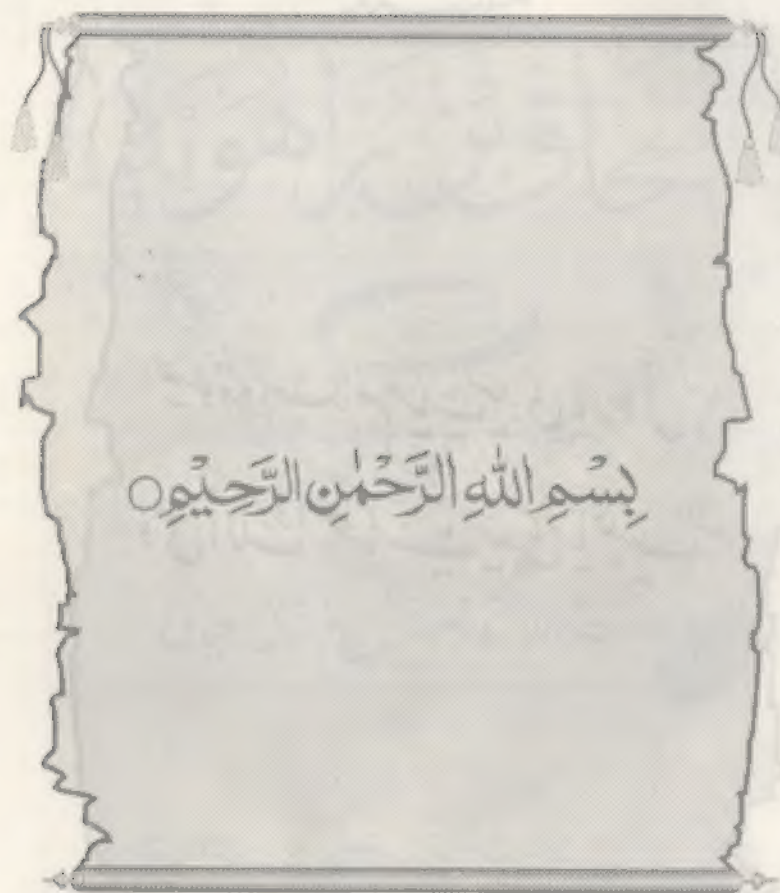 بِسْمِ اللهِ الرَّحْمٰنِ الرَّحِيْمِ○